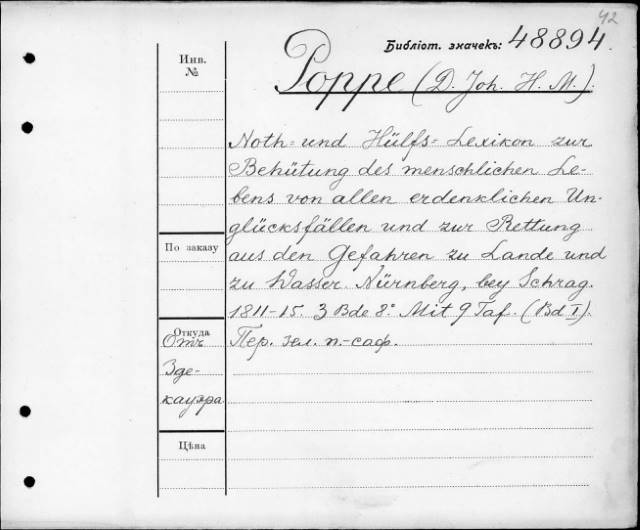 42
Библіот. значекъ: 48894.
Инв.
№
Poppe (D. Joh. H. M.).
Noth- und Hülfs-Lexikon zur
Behütung des menschlichen Le-
bens von allen erdenklichen Un-
glücksfällen und zur Rettung
aus den Gefahren zu Lande und
zu Wasser. Nürnberg, bey Schrag.
1811-15. 3 Bde 8.° Mit 9 Taf. (Bd I).
Пер. зел. п-саф.
По заказу
Откуда
Отъ
Зде-
кауэра
Цѣна